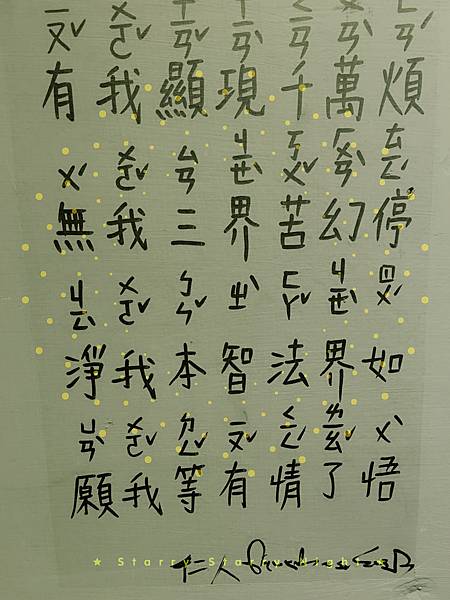 ㄧㄡˇ ㄨㄛˇ ㄒㄧㄢˇ ㄒㄧㄢˋ ㄑㄧㄢ ㄨㄢˋ ㄈㄢˊ
有我顯現千萬煩
ㄨˊ ㄨㄛˇ ㄙㄢ ㄐㄧㄝˋ ㄎㄨˇ ㄏㄨㄢˋ ㄊㄧㄥˊ
無我三界苦幻停
ㄐㄧㄥˋ ㄨㄛˇ ㄅㄣˇ ㄓˋ ㄈㄚˇ ㄐㄧㄝˋ ㄖㄨˊ
淨我本智法界如
ㄩㄢˋ ㄨㄛˇ ㄉㄥˇ ㄧㄡˇ ㄑㄧㄥˊ ㄌㄧㄠˇ ㄨˋ
願我等有情了悟
★ Starry Starry Night ★
仁人